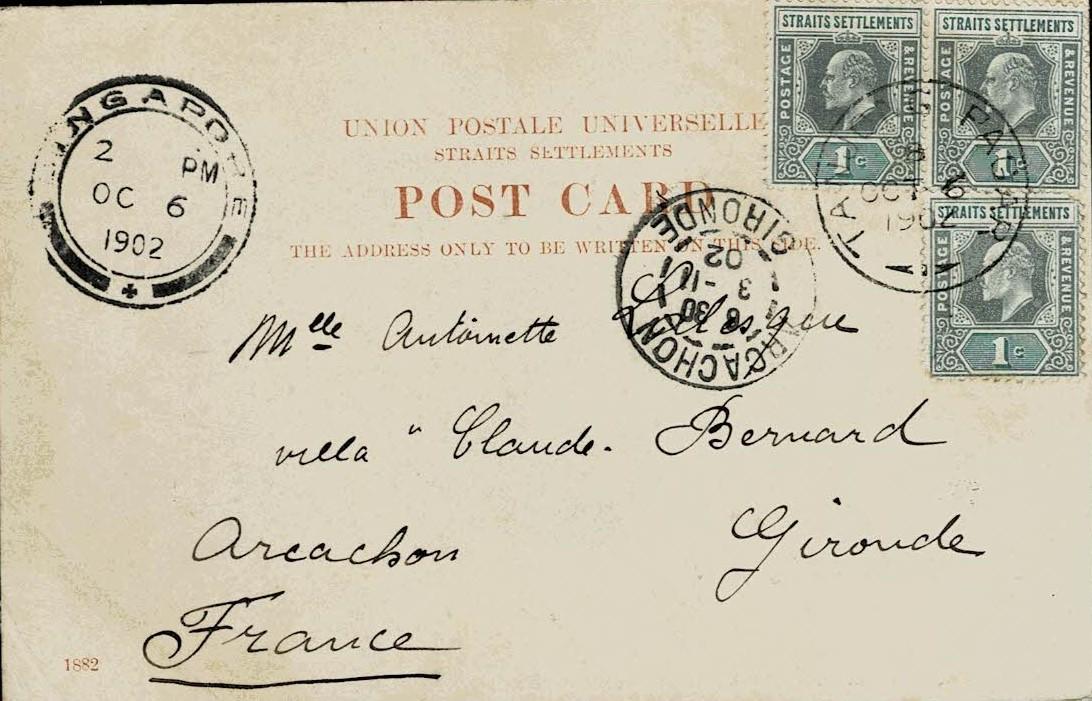 STRAITS SETTLEMENTS
POSTAGE & REVENUE
1c
STRAITS SETTLEMENTS
POSTAGE & REVENUE
1c
STRAITS SETTLEMENTS
POSTAGE & REVENUE
1c
SINGAPORE
2 PM
OC 6
1902
UNION POSTALE UNIVERSELLE
STRAITS SETTLEMENTS
POST CARD
THE ADDRESS ONLY TO BE WRITTEN ON THIS SIDE.
PAGAR
OCT
1902
ARCACHON
30
3 -11
02
GIRONDE
Mlle Antoinette
villa " Claude. Bernard
Arcachon Gironde
France
1882